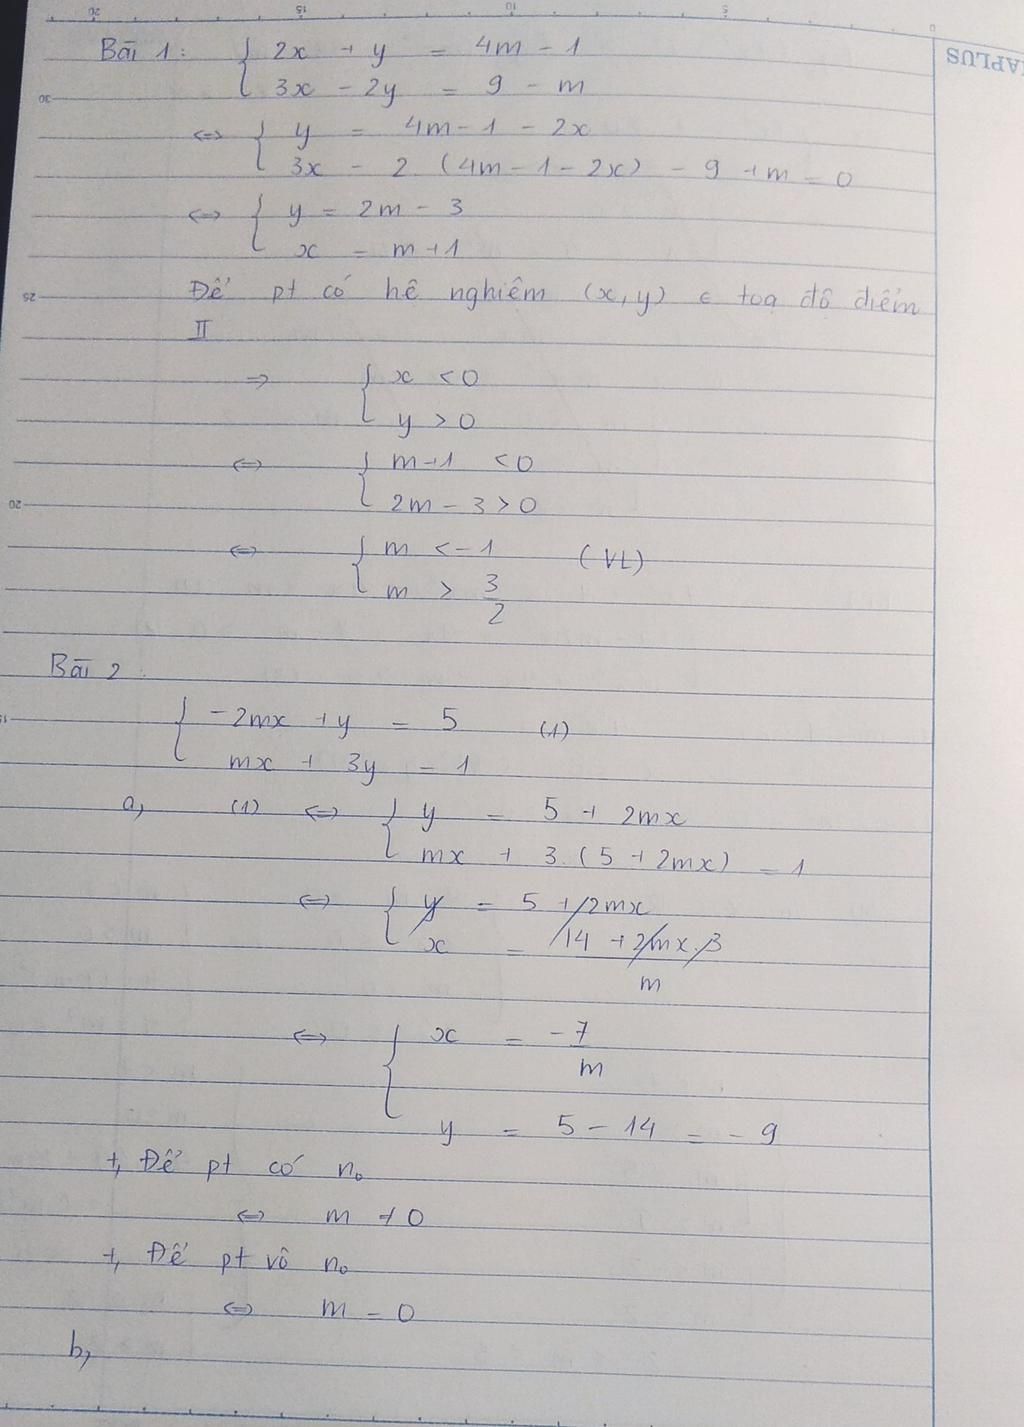 Bài 1: { 2x + y = 4m - 1
3x - 2y = 9 - m
<=> { y = 4m - 1 - 2x
3x - 2.(4m - 1 - 2x) - 9 + m = 0
<=> { y = 2m - 3
x = m + 1
Để pt có hê nghiêm (x, y) ∈ toạ đô điểm
II
=> { x < 0
y > 0
<=> { m + 1 < 0
2m - 3 > 0
<=> { m < -1 (VL)
m > 3/2
Bài 2:
{ -2mx + y = 5 (1)
mx + 3y = 1
a, (1) <=> { y = 5 + 2mx
mx + 3.(5 + 2mx) = 1
<=> { y = 5 + 2mx
x = 14 + 2mx.3
m
<=> { x = -7
m
y = 5 - 14 = -9
+, Để pt có n₀
<=> m ≠ 0
+, Để pt vô n₀
<=> m = 0
b,